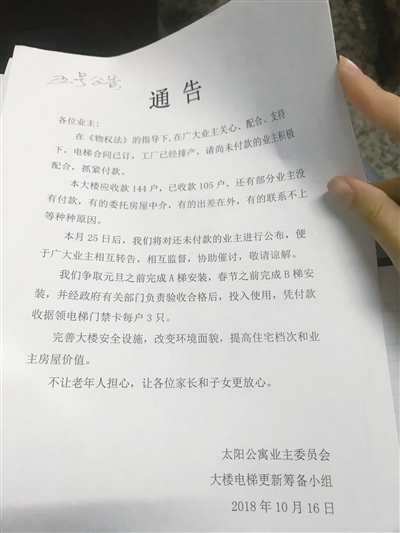 五号公告
通告
各位业主：
在《物权法》的指导下,在广大业主关心、配合、支持
下，电梯合同已订，工厂已经排产，请尚未付款的业主积极
配合，抓紧付款。
本大楼应收款 144 户，已收款 105 户，还有部分业主没
有付款，有的委托房屋中介，有的出差在外，有的联系不上
等种种原因。
本月 25 日后，我们将对还未付款的业主进行公布，便
于广大业主相互转告，相互监督，协助催讨，敬请谅解。
我们争取元旦之前完成 A 梯安装，春节之前完成 B 梯安
装，并经政府有关部门负责验收合格后，投入使用，凭付款
收据领电梯门禁卡每户 3 只。
完善大楼安全设施，改变环境面貌，提高住宅档次和业
主房屋价值。
不让老年人担心，让各位家长和子女更放心。
太阳公寓业主委员会
大楼电梯更新筹备小组
2018 年 10 月 16 日